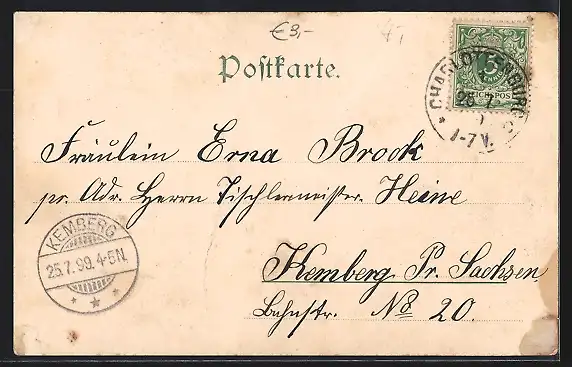 €3,-
Postkarte.
5
REICHSPOST
CHARLOTTENBURG
25 7
1-7V.
Fräulein Erna Brook
pr. Adr. Herrn Tischlermeister Heine
KEMBERG
25.7.99. 4-5N.
Kemberg Pr. Sachsen
Bahnstr. No 20.